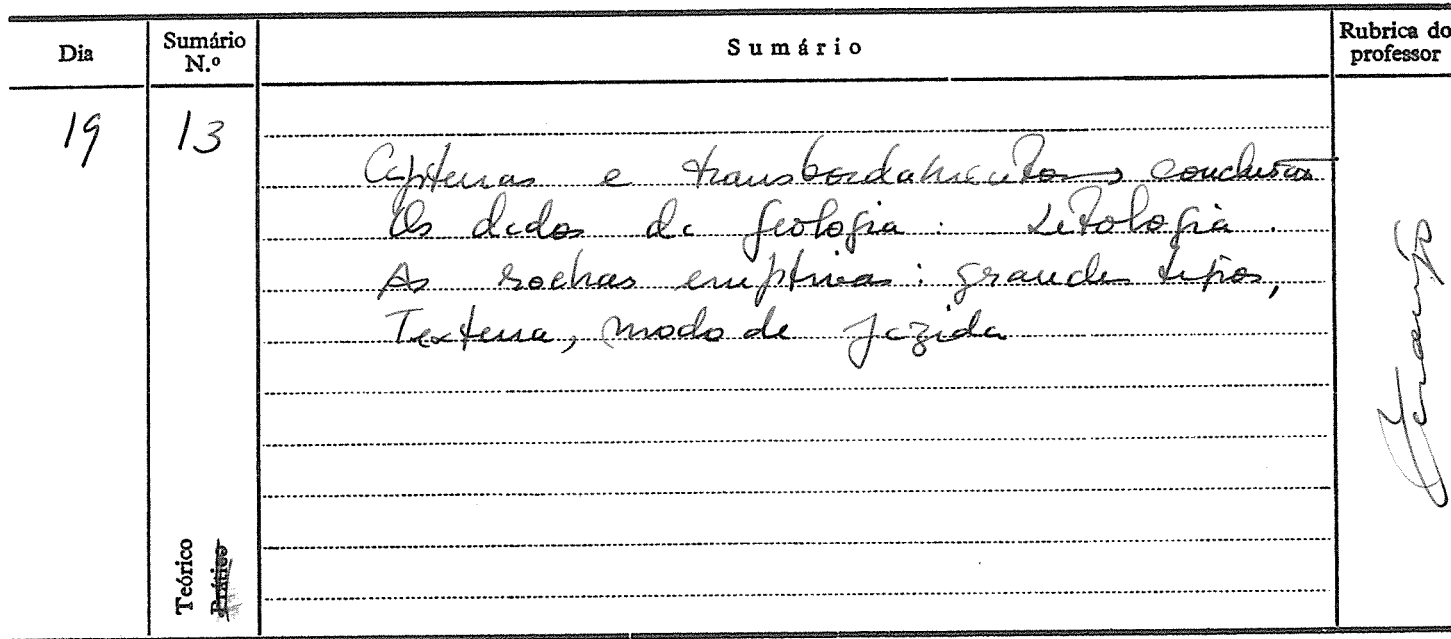 Dia
Sumário N.º
Sumário
Rubrica do professor
19
13
Capturas e transbordamentos conclusão
Os dados da geologia: Litologia.
As rochas eruptivas: grandes tipos,
Textura, modo de jazida
Teórico
Prático